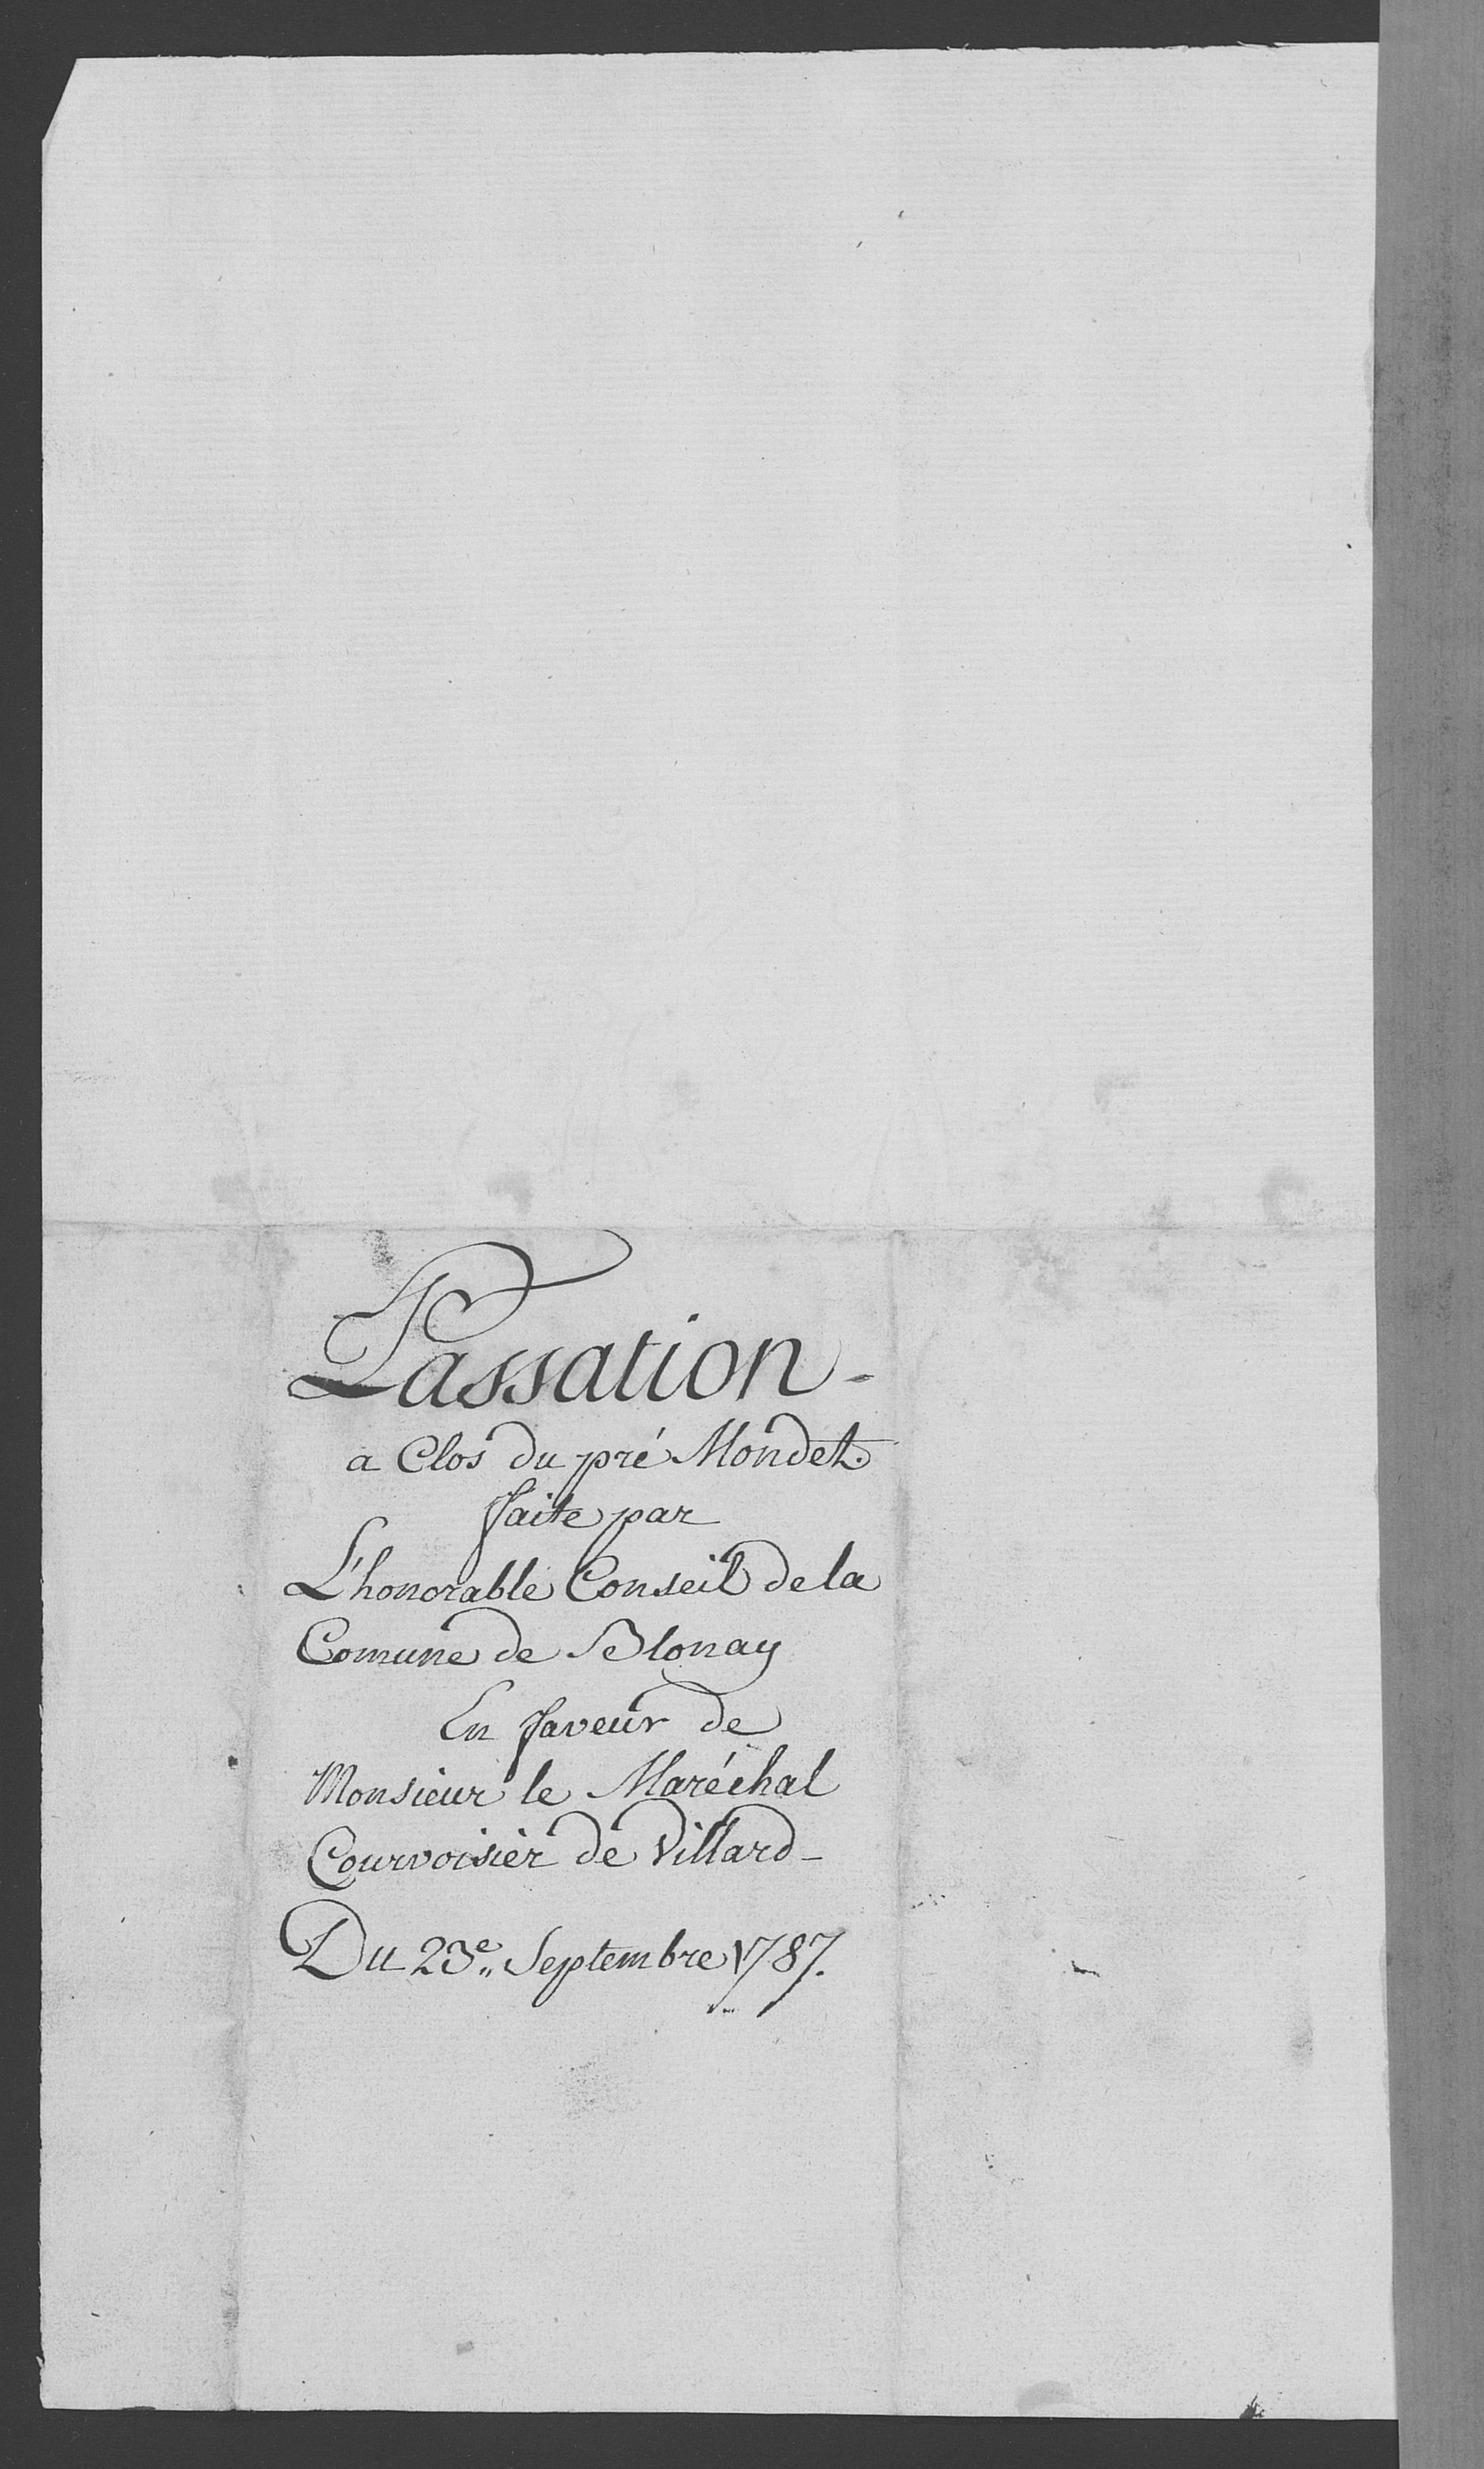 Passation -
a Clos du pré Mondet.
faite par
L'honorable Conseil de la
Comune de Blonay
En faveur de
Monsieur le Maréchal
Courvoisier de Villard -
Du 23e.. Septembre 1787.